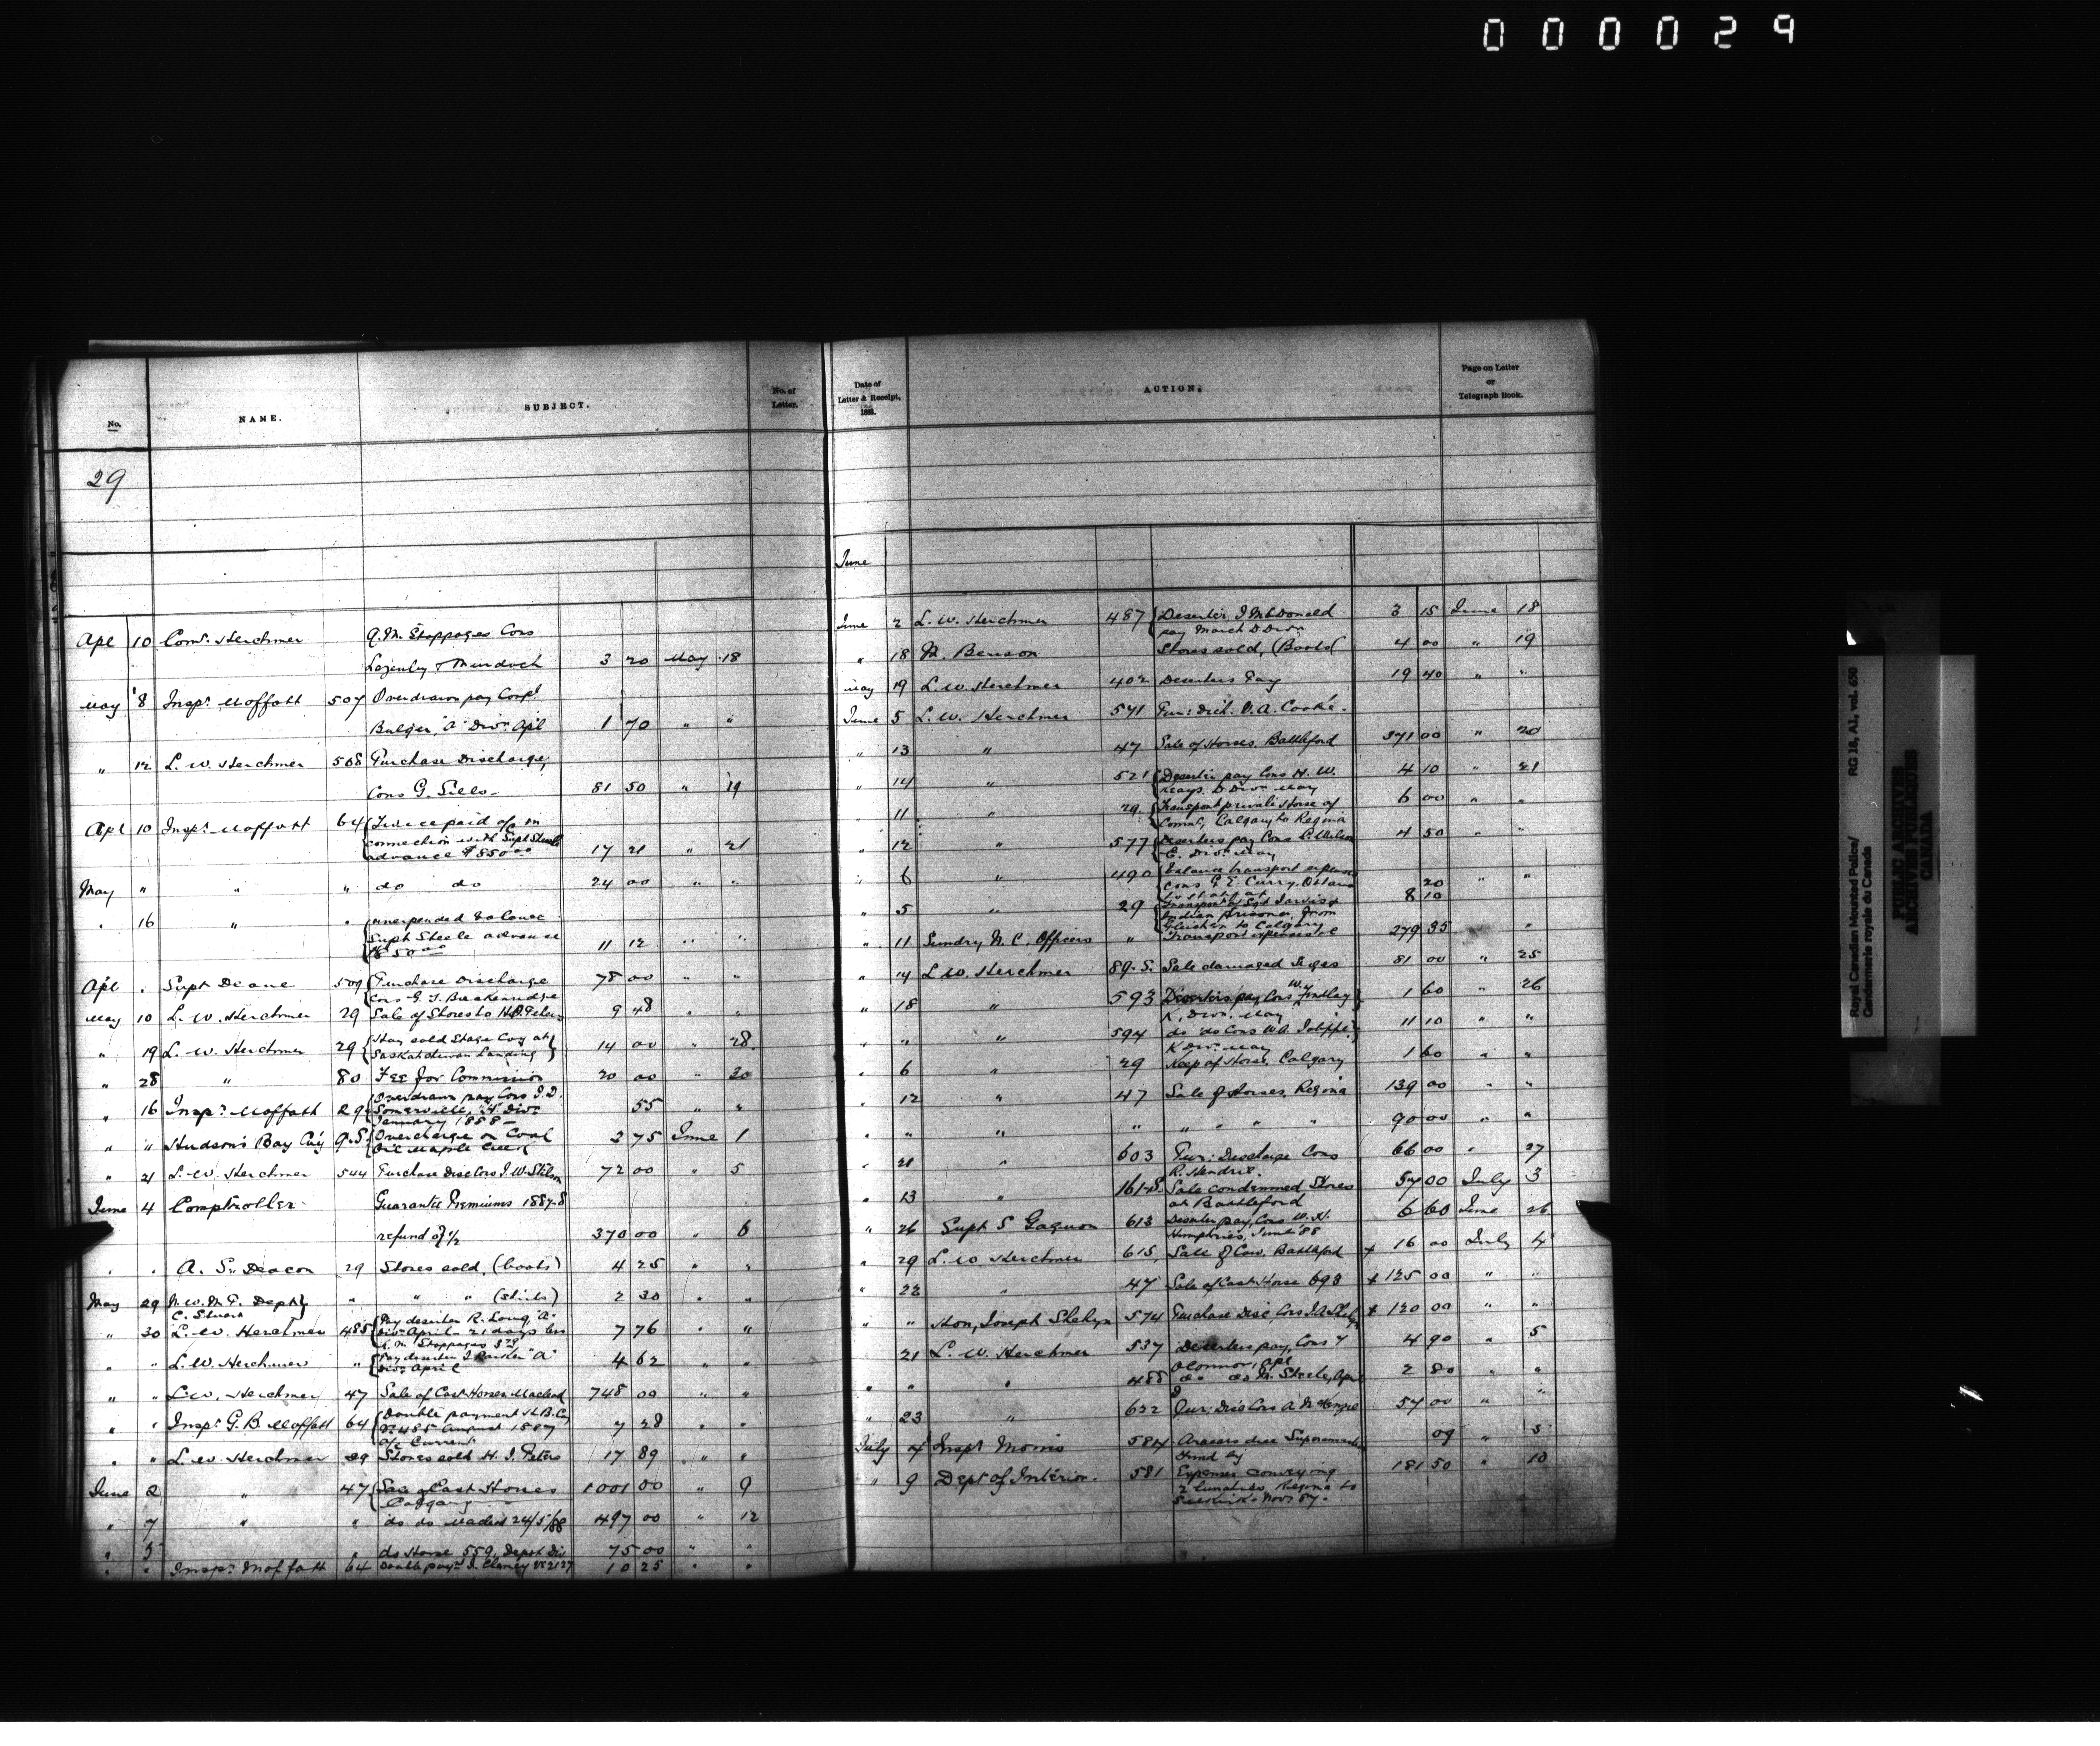 000029
No.
NAME.
SUBJECT.
No. of
Letter.
29
Apl 10 Comr. Herchmer Q.M. Stoppages Cons
Lazenby & Murdoch 3 20 May 18
May 8 Inspr. Moffatt 507 Overdrawn pay Corpl
Bulger, "A" Divn. Apl 1 70 " "
" 12 L. W. Herchmer 508 Purchase Discharge,
Cons G. Sills 81 50 " 19
Apl 10 Inspr. Moffatt 64 Twice paid a/c in
connection with Supt Steele
advance $850.00 17 21 " 21
May " " " do do 24 00 " "
" 16 " " unexpended balance
Supt Steele advance
11 12 " "
Apl " Supt Deane 509 Purchase Discharge 78 00 " "
Cons G. J. Breakenridge
May 10 L. W. Herchmer 29 Sale of Stores to H.J. Peters 9 48 " "
" 19 L. W. Herchmer 29 Hay sold Stage Coy at
Saskatchewan Landing 14 00 " 28
" 28 " 80 Fee for Commission 20 00 " 30
" 16 Inspr. Moffatt 29 Overdrawn pay Cons J.D.
Somerville, "H" Divn
January 1888 55 " "
" " Hudson's Bay Co'y 9.S. Overcharge on Coal
Oil Maple Creek 3 75 June 1
" 21 L. W. Herchmer 544 Purchase Disc Cons J. W. Stilson 72 00 " 5
June 4 Comptroller Guarantee Premiums 1887-8
refund of 1/2 370 00 " 6
" " A. S. Deacon 29 Stores sold, (boots) 4 25 " "
May 29 N.W.M.P. Dept " " " (shirts) 2 30 " "
C. Stuart
" 30 L. W. Herchmer 485 Pay deserter R. Long, "A"
Divn April - 21 days less
Q.M. Stoppages 7 76 " "
" " L. W. Herchmer " Pay deserter J. Parker "A"
Divn April 4 62 " "
" " L. W. Herchmer 47 Sale of Cast Horses Macleod 748 00 " "
" " Inspr. G. B. Moffatt 64 Double payment H. B. Coy
No 485 August 1887
a/c Current 7 28 " "
" " L. W. Herchmer 29 Stores sold H. J. Peters 17 89 " "
June 2 " 47 Sale of Cast Horses
Calgary 1001 00 " 9
" 7 " " do do Macleod 24/5/88 497 00 " 12
" 5 " do Horse 559, Depot Div 75 00 " "
" " Inspr. Moffatt 64 Double paymt. J. Claney 10 25 " "
Date of
Letter & Receipt,
1888.
ACTION.
Page on Letter
or
Telegraph Book.
June
June 2 L. W. Herchmer 487 Deserter J McDonald 3 15 June 18
pay March D Divn
" 18 M. Benson Stores sold, (Boots) 4 00 " 19
May 19 L. W. Herchmer 402 Deserters Pay 19 40 " "
June 5 L. W. Herchmer 541 Pur: Disch. V. A. Cooke.
" 13 " 47 Sale of Horses, Battleford 371 00 " 20
" 14 " 521 Deserter pay Cons H. W. 4 10 " 21
Mays, D Divn May
" 11 " 29 Transport private Horse of 6 00 " "
Commr, Calgary to Regina
" 12 " 577 Deserters pay Cons P. Wilson 4 50 " "
E. Divn May
" 6 " 490 balance transport expenses
Cons G. E. Curry, Ottawa 20 " "
" 5 " 29 Transport Sgt Jarvis & 8 10
Indian prisoner, from
Gleichen to Calgary
" 11 Sundry N. C. Officers " Transport expenses 279 35 "
" 14 L. W. Herchmer 89.S. Sale damaged Serges 81 00 " 25
" 18 " 593 Deserters pay Cons W. Findlay 1 60 " 26
K. Divn, May
" " 594 do do Cons W. A. Joliffe, 11 10 " "
K Divn May
" 6 " 29 Keep of Horse, Calgary 1 60 " "
" 12 " 47 Sale of Horses, Regina 139 00 " "
" " " " " " " 90 00 " "
" 21 " 603 Pur: Discharge Cons 66 00 " 27
R. Hendrie.
" 13 " Sale condemned Stores 57 00 July 3
at Battleford
" 26 Supt S Gagnon 613 Deserter pay, Cons W. H. 6 60 June 26
Humphries, June '88
" 29 L. W. Herchmer 615 Sale of Cow. Battleford + 16 00 July 4
" 22 " 47 Sale of Cast Horse 693 + 125 00 " "
" " Hon, Joseph Shehyn 574 Purchase Disc Cons + 120 00 " "
" 21 L. W. Herchmer 537 Deserters pay, Cons Y 4 90 " 5
O'Connor, Apl
" " " 488 do do M. Steele, April 2 80 " "
" 23 " 622 Pur: Disc Cons A McKenzie 57 00 " "
July 4 Inspr Morris 584 Arrears due Superannuation 09 " 5
Fund by
" 9 Dept of Interior. 581 Expenses conveying 181 50 " 10
2 lunatics, Regina to
Selkirk - Nov 87.
Royal Canadian Mounted Police/ RG 18, A1, vol. 650
Gendarmerie royale du Canada
PUBLIC ARCHIVES
ARCHIVES PUBLIQUES
CANADA